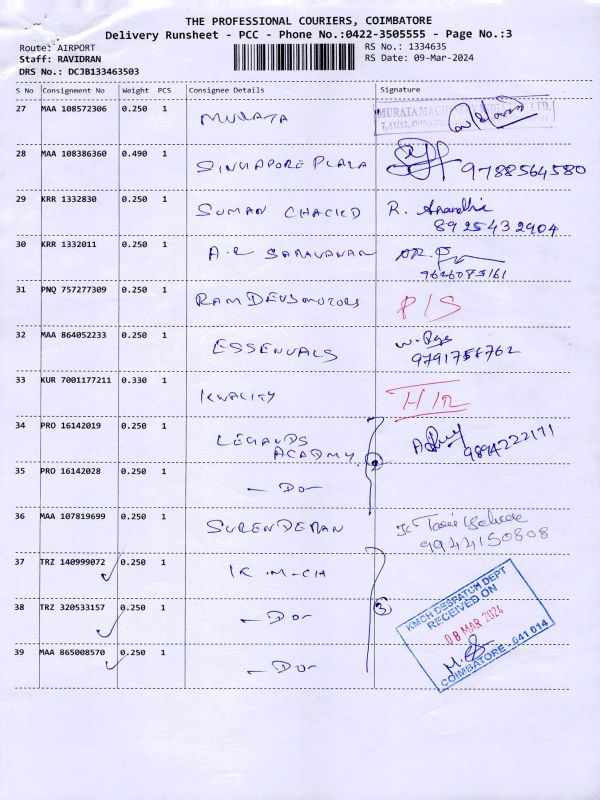 THE PROFESSIONAL COURIERS, COIMBATORE
Delivery Runsheet - PCC - Phone No.:0422-3505555 - Page No.:3
Route: AIRPORT
RS No.: 1334635
Staff: RAVIDRAN
RS Date: 09-Mar-2024
DRS No.: DCJB133463503
S No Consignment No Weight PCS Consignee Details Signature
27 MAA 108572306 0.250 1 MURATA MURATA
28 MAA 108386360 0.490 1 SINGAPORE PLAZA 9788564580
29 KRR 1332830 0.250 1 SUMAN CHACKO R. Anandhi
8925432904
30 KRR 1332011 0.250 1 A.R SARAVANAN
9626093161
31 PNQ 757277309 0.250 1 RAMDEVSMOTORS P/S
32 MAA 864052233 0.250 1 ESSENVALS
9791758762
33 KUR 7001177211 0.330 1 KWALITY
34 PRO 16142019 0.250 1 LEGANDS
ACADMY 2 9894222171
35 PRO 16142028 0.250 1 - Do -
36 MAA 107819699 0.250 1 SURENDERAN
9944150808
37 TRZ 140999072 0.250 1 K.M.CH
38 TRZ 320533157 0.250 1 - Do - 3
39 MAA 865008570 0.250 1 - Do -
KMCH DESPATCH DEPT
RECEIVED ON
08 MAR 2024
COIMBATORE - 641 014